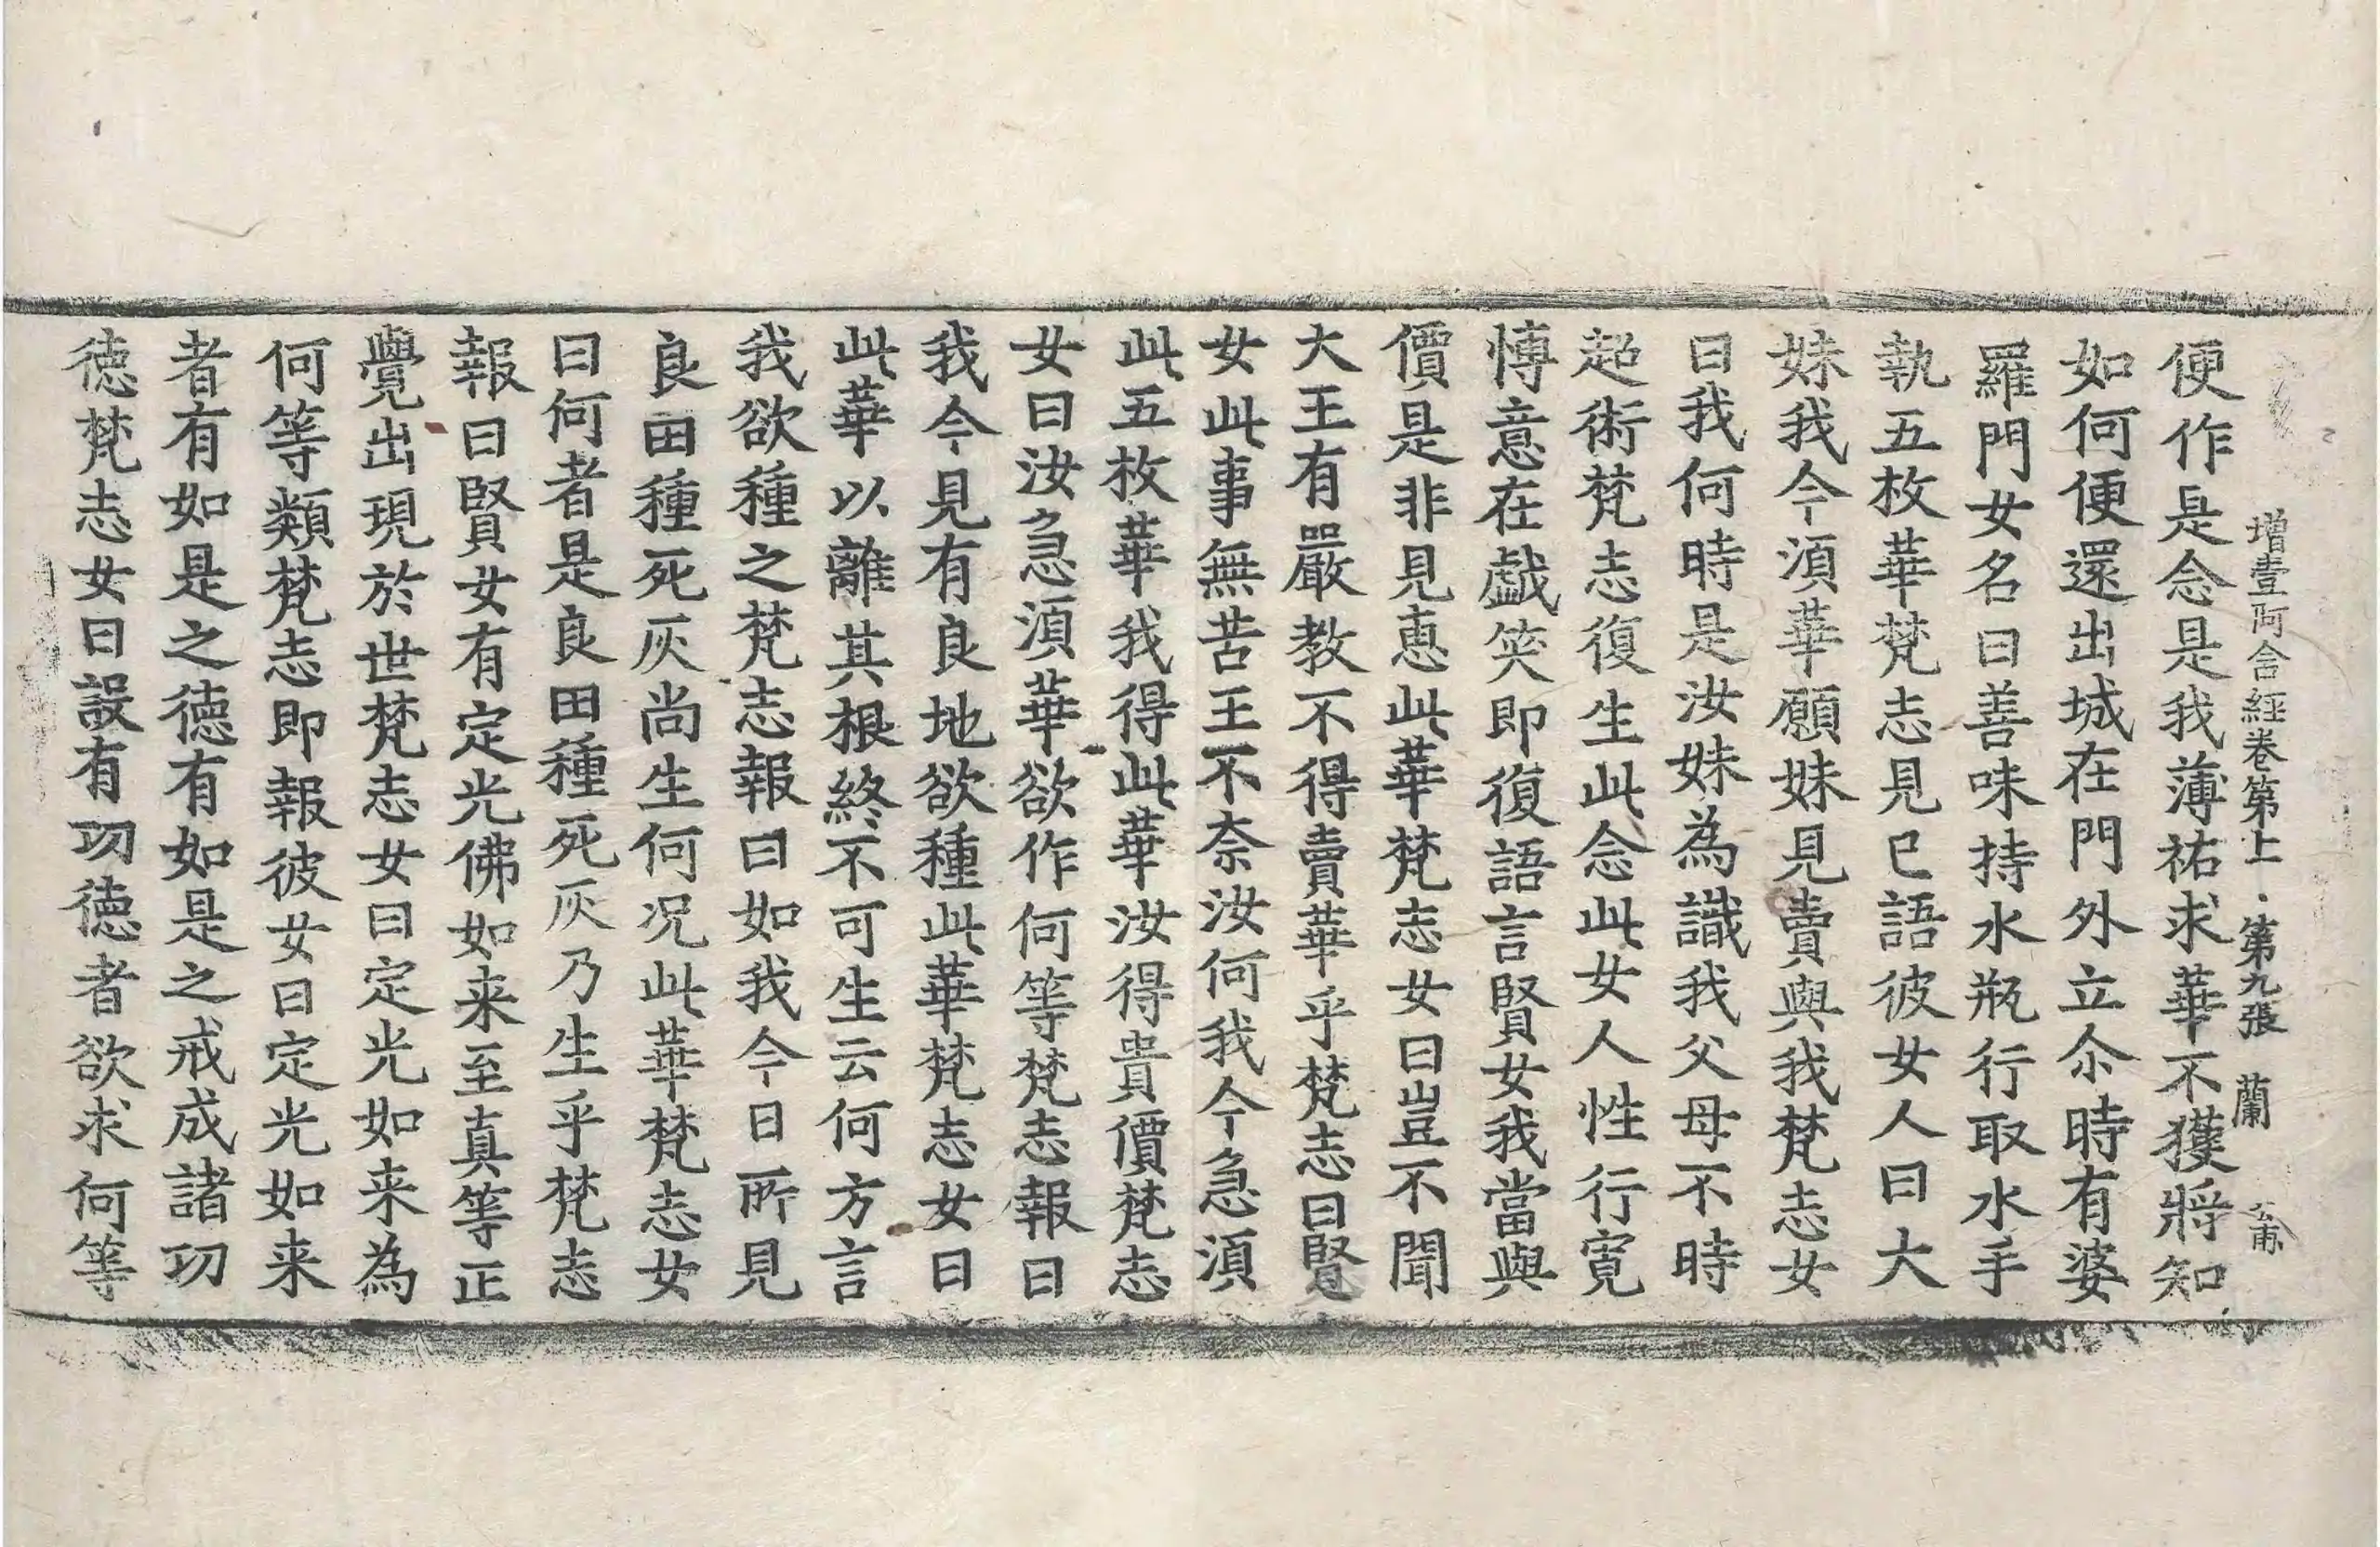 增壹阿含經卷第十一　第九張　蘭
便作是念是我薄祐求華不獲將知
如何便還出城在門外立尒時有婆
羅門女名曰善味持水瓶行取水手
執五枚華梵志見已語彼女人曰大
妹我今湏華願妹見賣與我梵志女
曰我何時是汝妹為識我父母不時
超術梵志復生此念此女人性行寬
慱意在戱笑即復語言賢女我當與
價是非見惠此華梵志女曰豈不聞
大王有嚴教不得賣華乎梵志曰賢
女此事無苦王不奈汝何我今急湏
此五枚華我得此華汝得貴價梵志
女曰汝急湏華欲作何等梵志報曰
我今見有良地欲種此華梵志女曰
此華以離其根終不可生云何方言
我欲種之梵志報曰如我今日所見
良田種死灰尚生何况此華梵志女
曰何者是良田種死灰乃生乎梵志
報曰賢女有定光佛如来至真等正
覺出現於世梵志女曰定光如来為
何等類梵志即報彼女曰定光如来
者有如是之徳有如是之戒成諸功
徳梵志女曰設有功徳者欲求何等